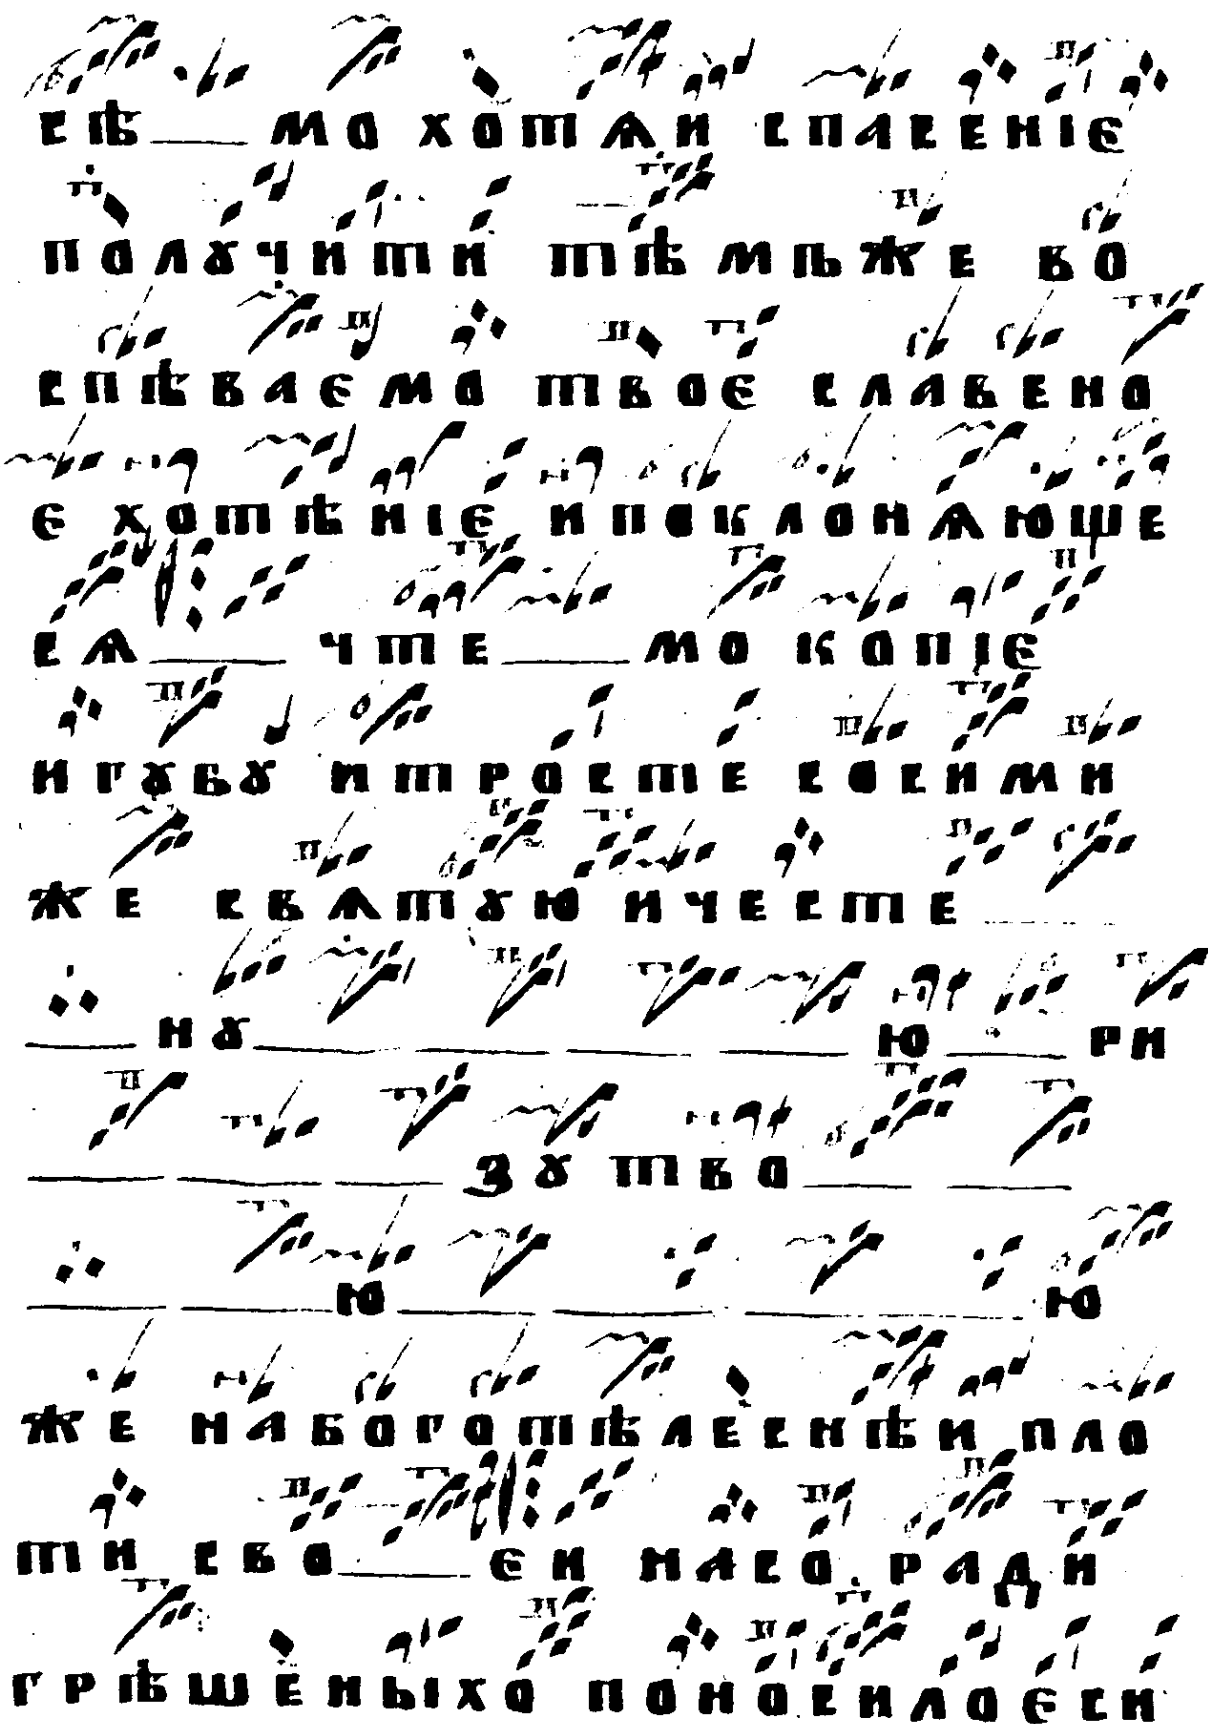 сѣ мо хотѧи спасениє
получити тѣмьже во
спѣваємо твоє славено
є хотѣниє ипоклонѧюще
сѧ чте мо копиє
игꙋбꙋ итросте сосими
же свѧтꙋю ичесте
нꙋ ю ри
зꙋ тво
ю ю
же набоготѣлеснѣи пло
ти сво єи насо ради
грѣшеныхо поносилоєси